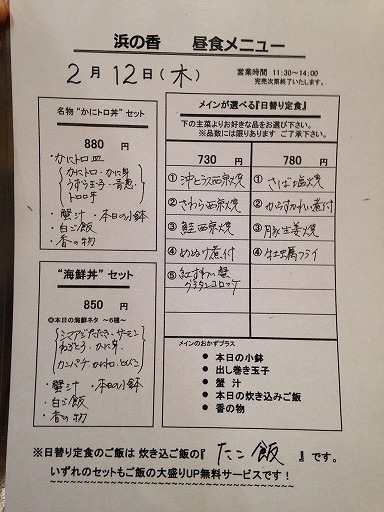 浜の香　昼食メニュー
2月12日(木)
営業時間 11:30～14:00
完売次第終了いたします。
名物 “かにトロ丼” セット
880 円
・かにトロ皿
かにトロ・かに身
うずら玉子・青葱
トロロ芋
・蟹汁 ・本日の小鉢
・白ご飯
・香の物
“海鮮丼” セット
850 円
◎本日の海鮮ネタ ～6種～
シマアジたたき・サーモン
ねぎとろ・かに身
カンパチ・かわわ・とびこ
・蟹汁 ・本日の小鉢
・白ご飯
・香の物
メインが選べる『日替り定食』
下の主菜よりお好きな品をお選び下さい。
※品数には限りあります　ご了承下さい。
730 円
780 円
① 沖ヒラス西京焼
① さば塩焼
② さわら西京焼
② からすかれい煮付
③ 鮭西京焼
③ 豚生姜焼
④ めぬけ煮付
④ 牡蠣フライ
⑤ 紅ずわい蟹
グラタンコロッケ
メインのおかずプラス
● 本日の小鉢
● 出し巻き玉子
● 蟹 汁
● 本日の炊き込みご飯
● 香の物
※日替り定食のご飯は 炊き込ご飯の『 たこ飯 』です。
いずれのセットもご飯の大盛りUP無料サービスです！